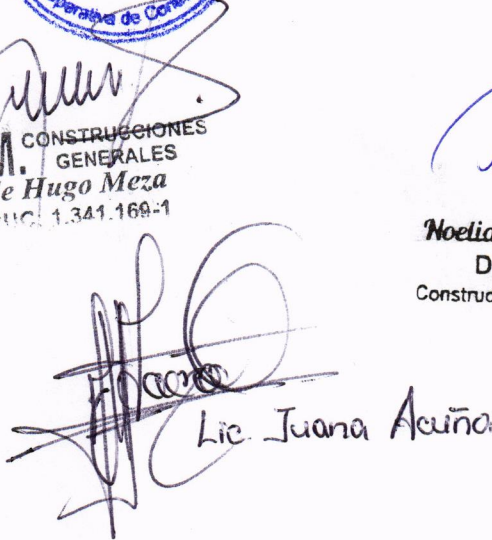 de Con
CONSTRUCCIONES
M. GENERALES
Hugo Meza
1.341.169-1
Noelia
D
Construc
Lic. Juana Acuña